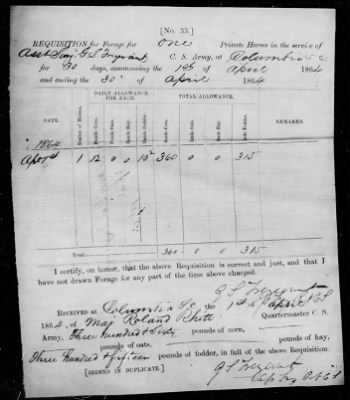 [No. 33.]
REQUISITION for Forage for one Private Horses in the service of
Asst Surg G. S. Trezevant C. S. Army, at Columbia S.C.
for 30 days, commencing the 1st of April 1864
and ending the 30 of April 1864
DAILY ALLOWANCE FOR EACH. TOTAL ALLOWANCE.
DATE. Number of Horses. Pounds Corn. Pounds Oats. Pounds Hay. Pounds Fodder. Pounds Corn. Pounds Oats. Pounds Hay. Pounds Fodder. REMARKS.
1864
1 12 0 0 360 0 0 315
Total 360 0 0 315
I certify, on honor, that the above Requisition is correct and just, and that I
have not drawn Forage for any part of the time above charged.
RECEIVED at Columbia S.C. the
1864, of Maj Roland Rhett Quartermaster C. S.
Army, Three hundred & Sixty pounds of corn, pounds of hay,
pounds of oats,
Three hundred & fifteen pounds of fodder, in full of the above Requisition.
[SIGNED IN DUPLICATE.]